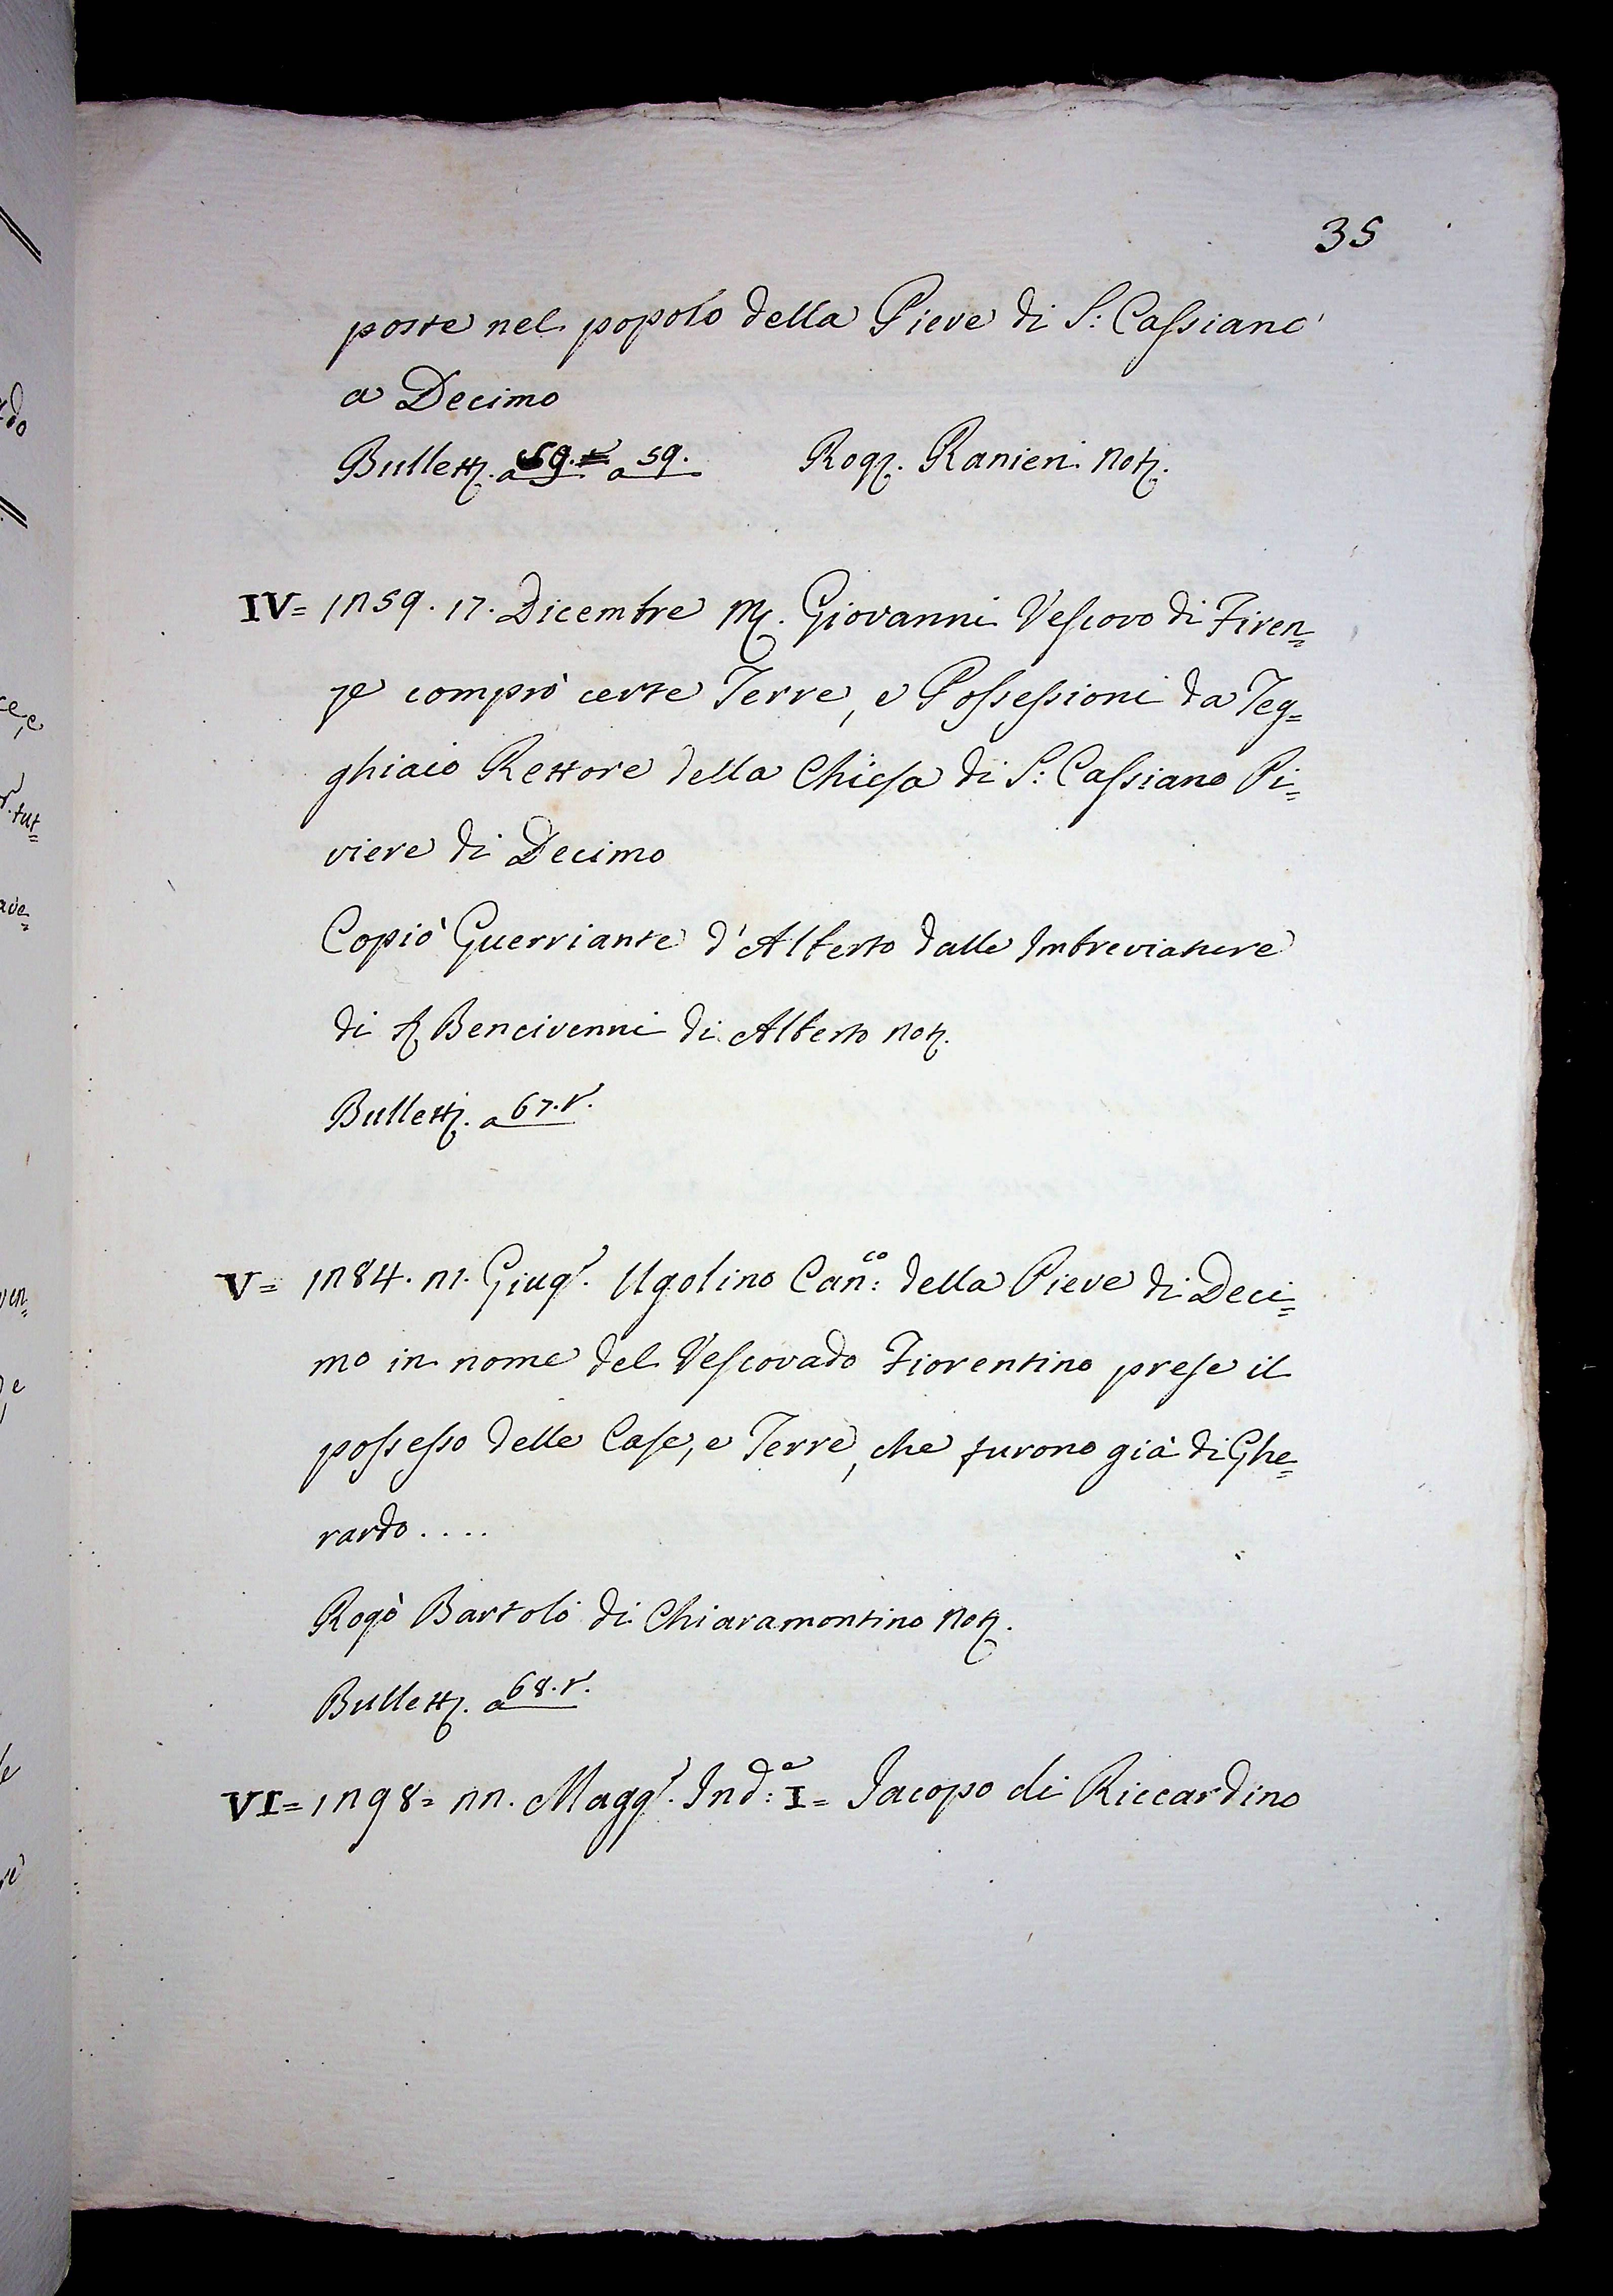 35
poste nel popolo della Pieve di S: Cassiano
a Decimo
Bullett. a 59. Rog. Ranieri Not.
IV= 1259. 17. Dicembre M. Giovanni Vescovo di Firen=
ze comprò certe Terre, e Possessioni da Teg=
ghiaio Rettore della Chiesa di S: Cassiano Pi=
viere di Decimo
Copiò Guerriante d'Alberto dalle Imbreviature
di S. Bencivenni di Alberto Not.
Bullett. a 67.t.
V= 1284. 21. Giug. Ugolino Can:co della Pieve di Deci=
mo in nome del Vescovado Fiorentino prese il
possesso delle Case, e Terre, che furono già di Ghe=
rardo....
Rogò Bartolo di Chiaramontino Not.
Bullett. a 68.t.
VI= 1298= 22. Magg. Ind:e I= Jacopo di Riccardino